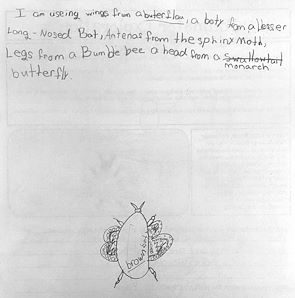 I am useing wings from a buterflau, a boty from a Lesser
Long-Nosed Bat, Antenas from the sphinx Moth,
Legs from a Bumble bee a head from a Swallowtart
monarch
butterfly.
brown